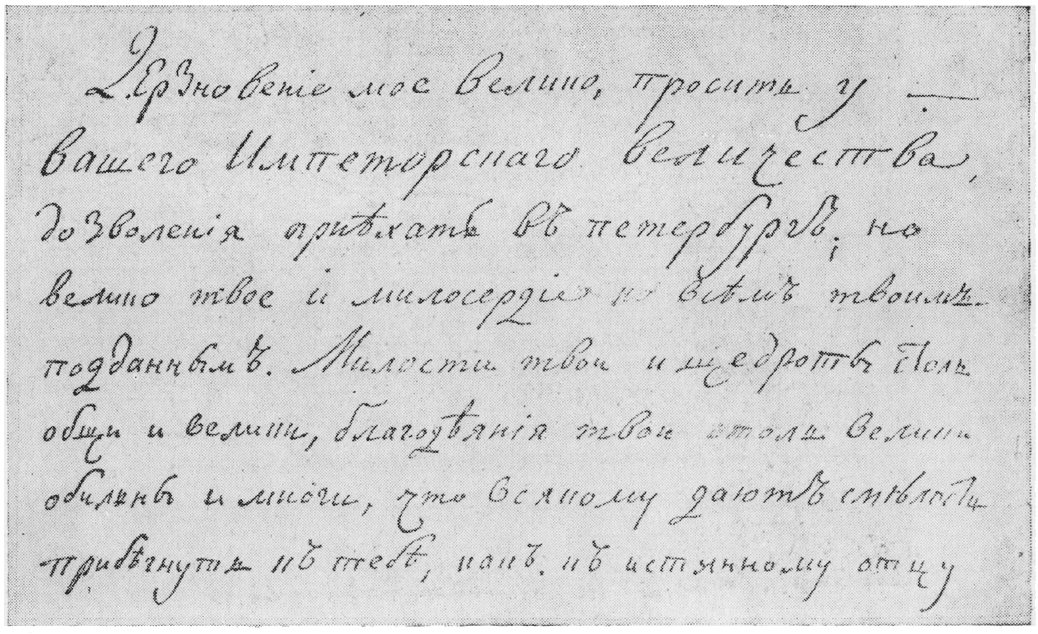 Дерзновеніе мое велико, просить у
вашего Императорскаго величества,
дозволенія приѣхать въ петербургъ, но
велико твое и милосердіе ко всѣмъ твоимъ
подданнымъ. Милости твои и щедроты столь
общи и велики, благодѣянія твои столь велики
обильны и многи, что всякому даютъ смѣлость
прибѣгнуть къ тебѣ, какъ къ истинному отцу